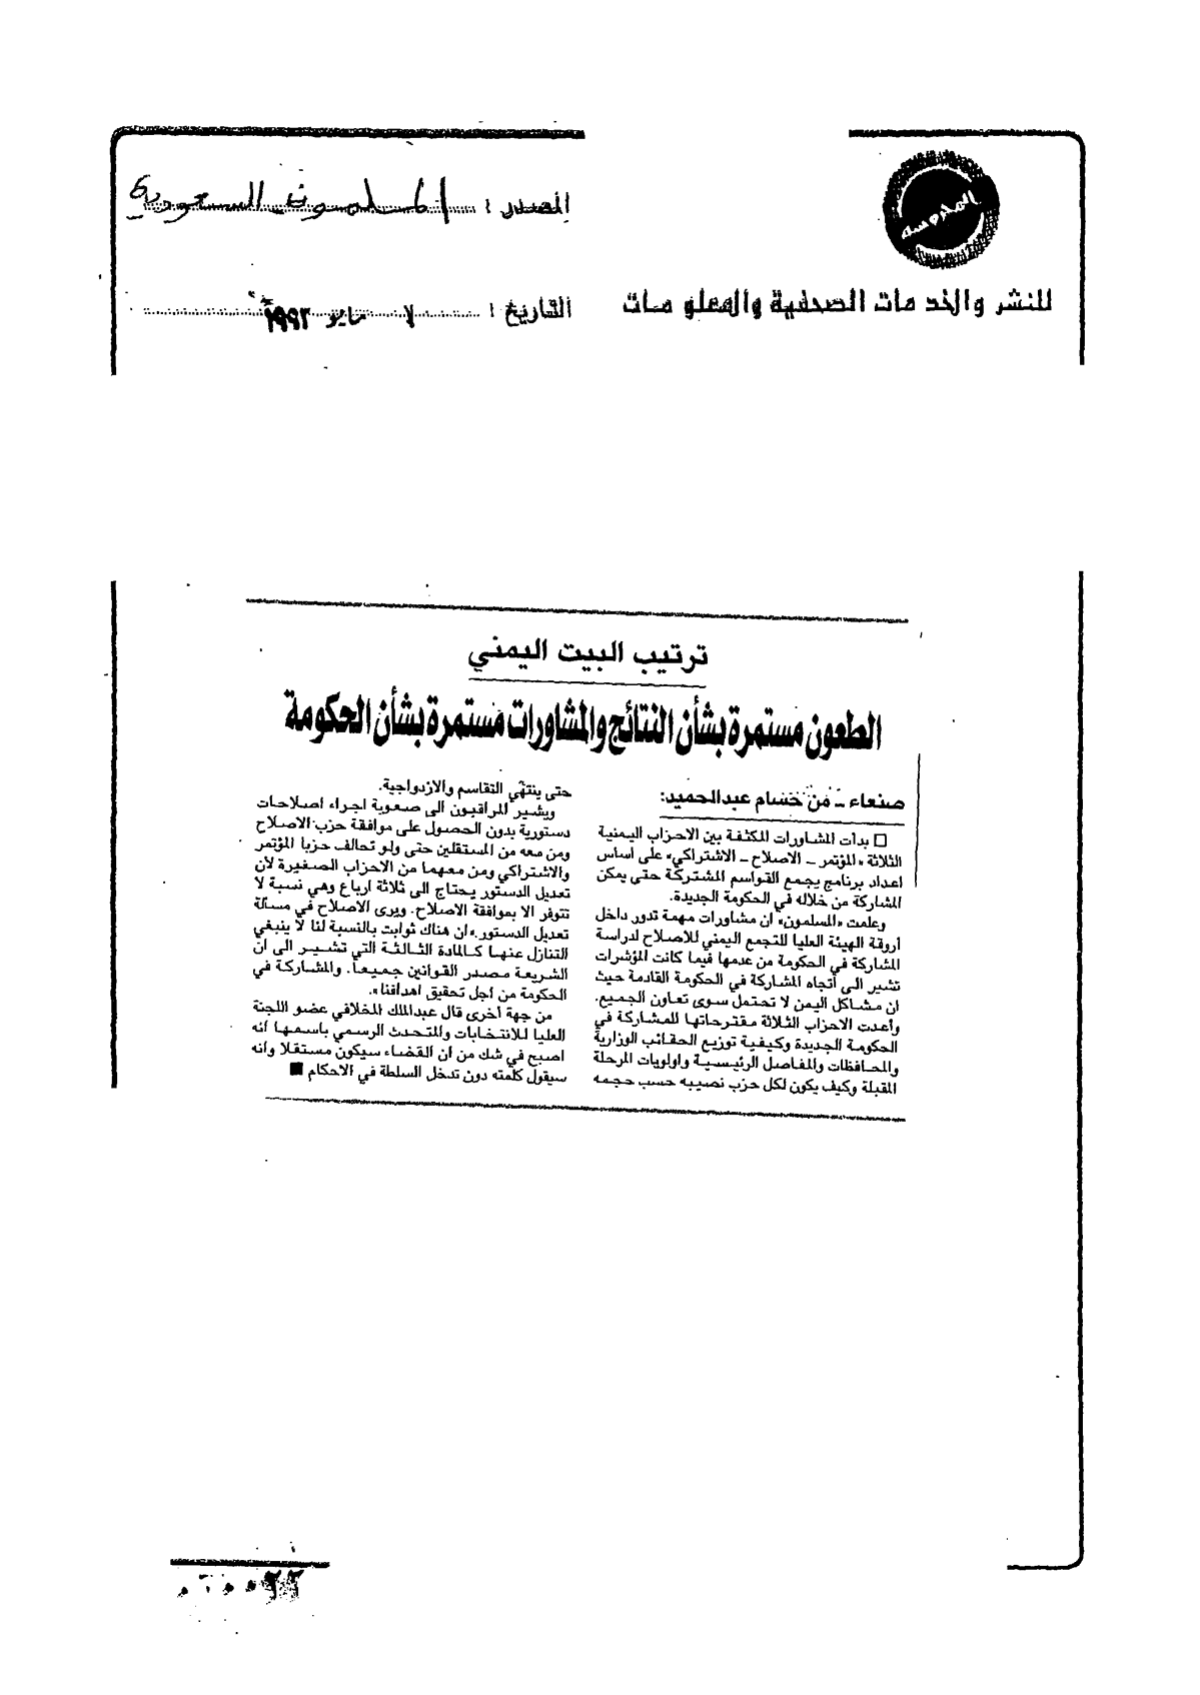 المحروسة
للنشر والخدمات الصحفية والمعلومات
المصدر : المسلمون السعودية
التاريخ : ٧ مايو ١٩٩٣
ترتيب البيت اليمني
الطعون مستمرة بشأن النتائج والمشاورات مستمرة بشأن الحكومة
صنعاء ـ من حسام عبدالحميد:
□ بدأت المشاورات المكثفة بين الاحزاب اليمنية
الثلاثة «المؤتمر ـ الاصلاح ـ الاشتراكي» على أساس
اعداد برنامج يجمع القواسم المشتركة حتى يمكن
المشاركة من خلاله في الحكومة الجديدة.
وعلمت «المسلمون» ان مشاورات مهمة تدور داخل
أروقة الهيئة العليا للتجمع اليمني للاصلاح لدراسة
المشاركة في الحكومة من عدمها فيما كانت المؤشرات
تشير الى أتجاه المشاركة في الحكومة القادمة حيث
ان مشاكل اليمن لا تحتمل سوى تعاون الجميع.
وأعدت الاحزاب الثلاثة مقترحاتها للمشاركة في
الحكومة الجديدة وكيفية توزيع الحقائب الوزارية
والمحافظات والمفاصل الرئيسية واولويات المرحلة
المقبلة وكيف يكون لكل حزب نصيبه حسب حجمه
حتى ينتهي التقاسم والازدواجية.
ويشير المراقبون الى صعوبة اجراء اصلاحات
دستورية بدون الحصول على موافقة حزب الاصلاح
ومن معه من المستقلين حتى ولو تحالف حزبا المؤتمر
والاشتراكي ومن معهما من الاحزاب الصغيرة لأن
تعديل الدستور يحتاج الى ثلاثة ارباع وهي نسبة لا
تتوفر الا بموافقة الاصلاح. ويرى الاصلاح في مسألة
تعديل الدستور «ان هناك ثوابت بالنسبة لنا لا ينبغي
التنازل عنها كالمادة الثالثة التي تشير الى ان
الشريعة مصدر القوانين جميعا. والمشاركة في
الحكومة من أجل تحقيق اهدافنا».
من جهة أخرى قال عبدالملك المخلافي عضو اللجنة
العليا للانتخابات والمتحدث الرسمي باسمها انه
اصبح في شك من ان القضاء سيكون مستقلا وانه
سيقول كلمته دون تدخل السلطة في الاحكام ■